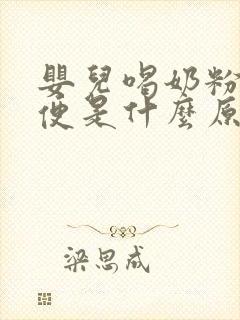 嬰兒喝奶粉
便是什麼原
梁思成